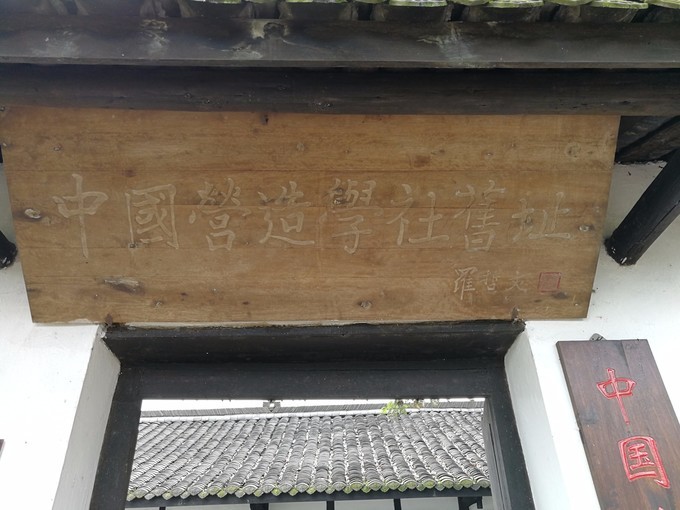 中國營造學社舊址
羅哲文
中国